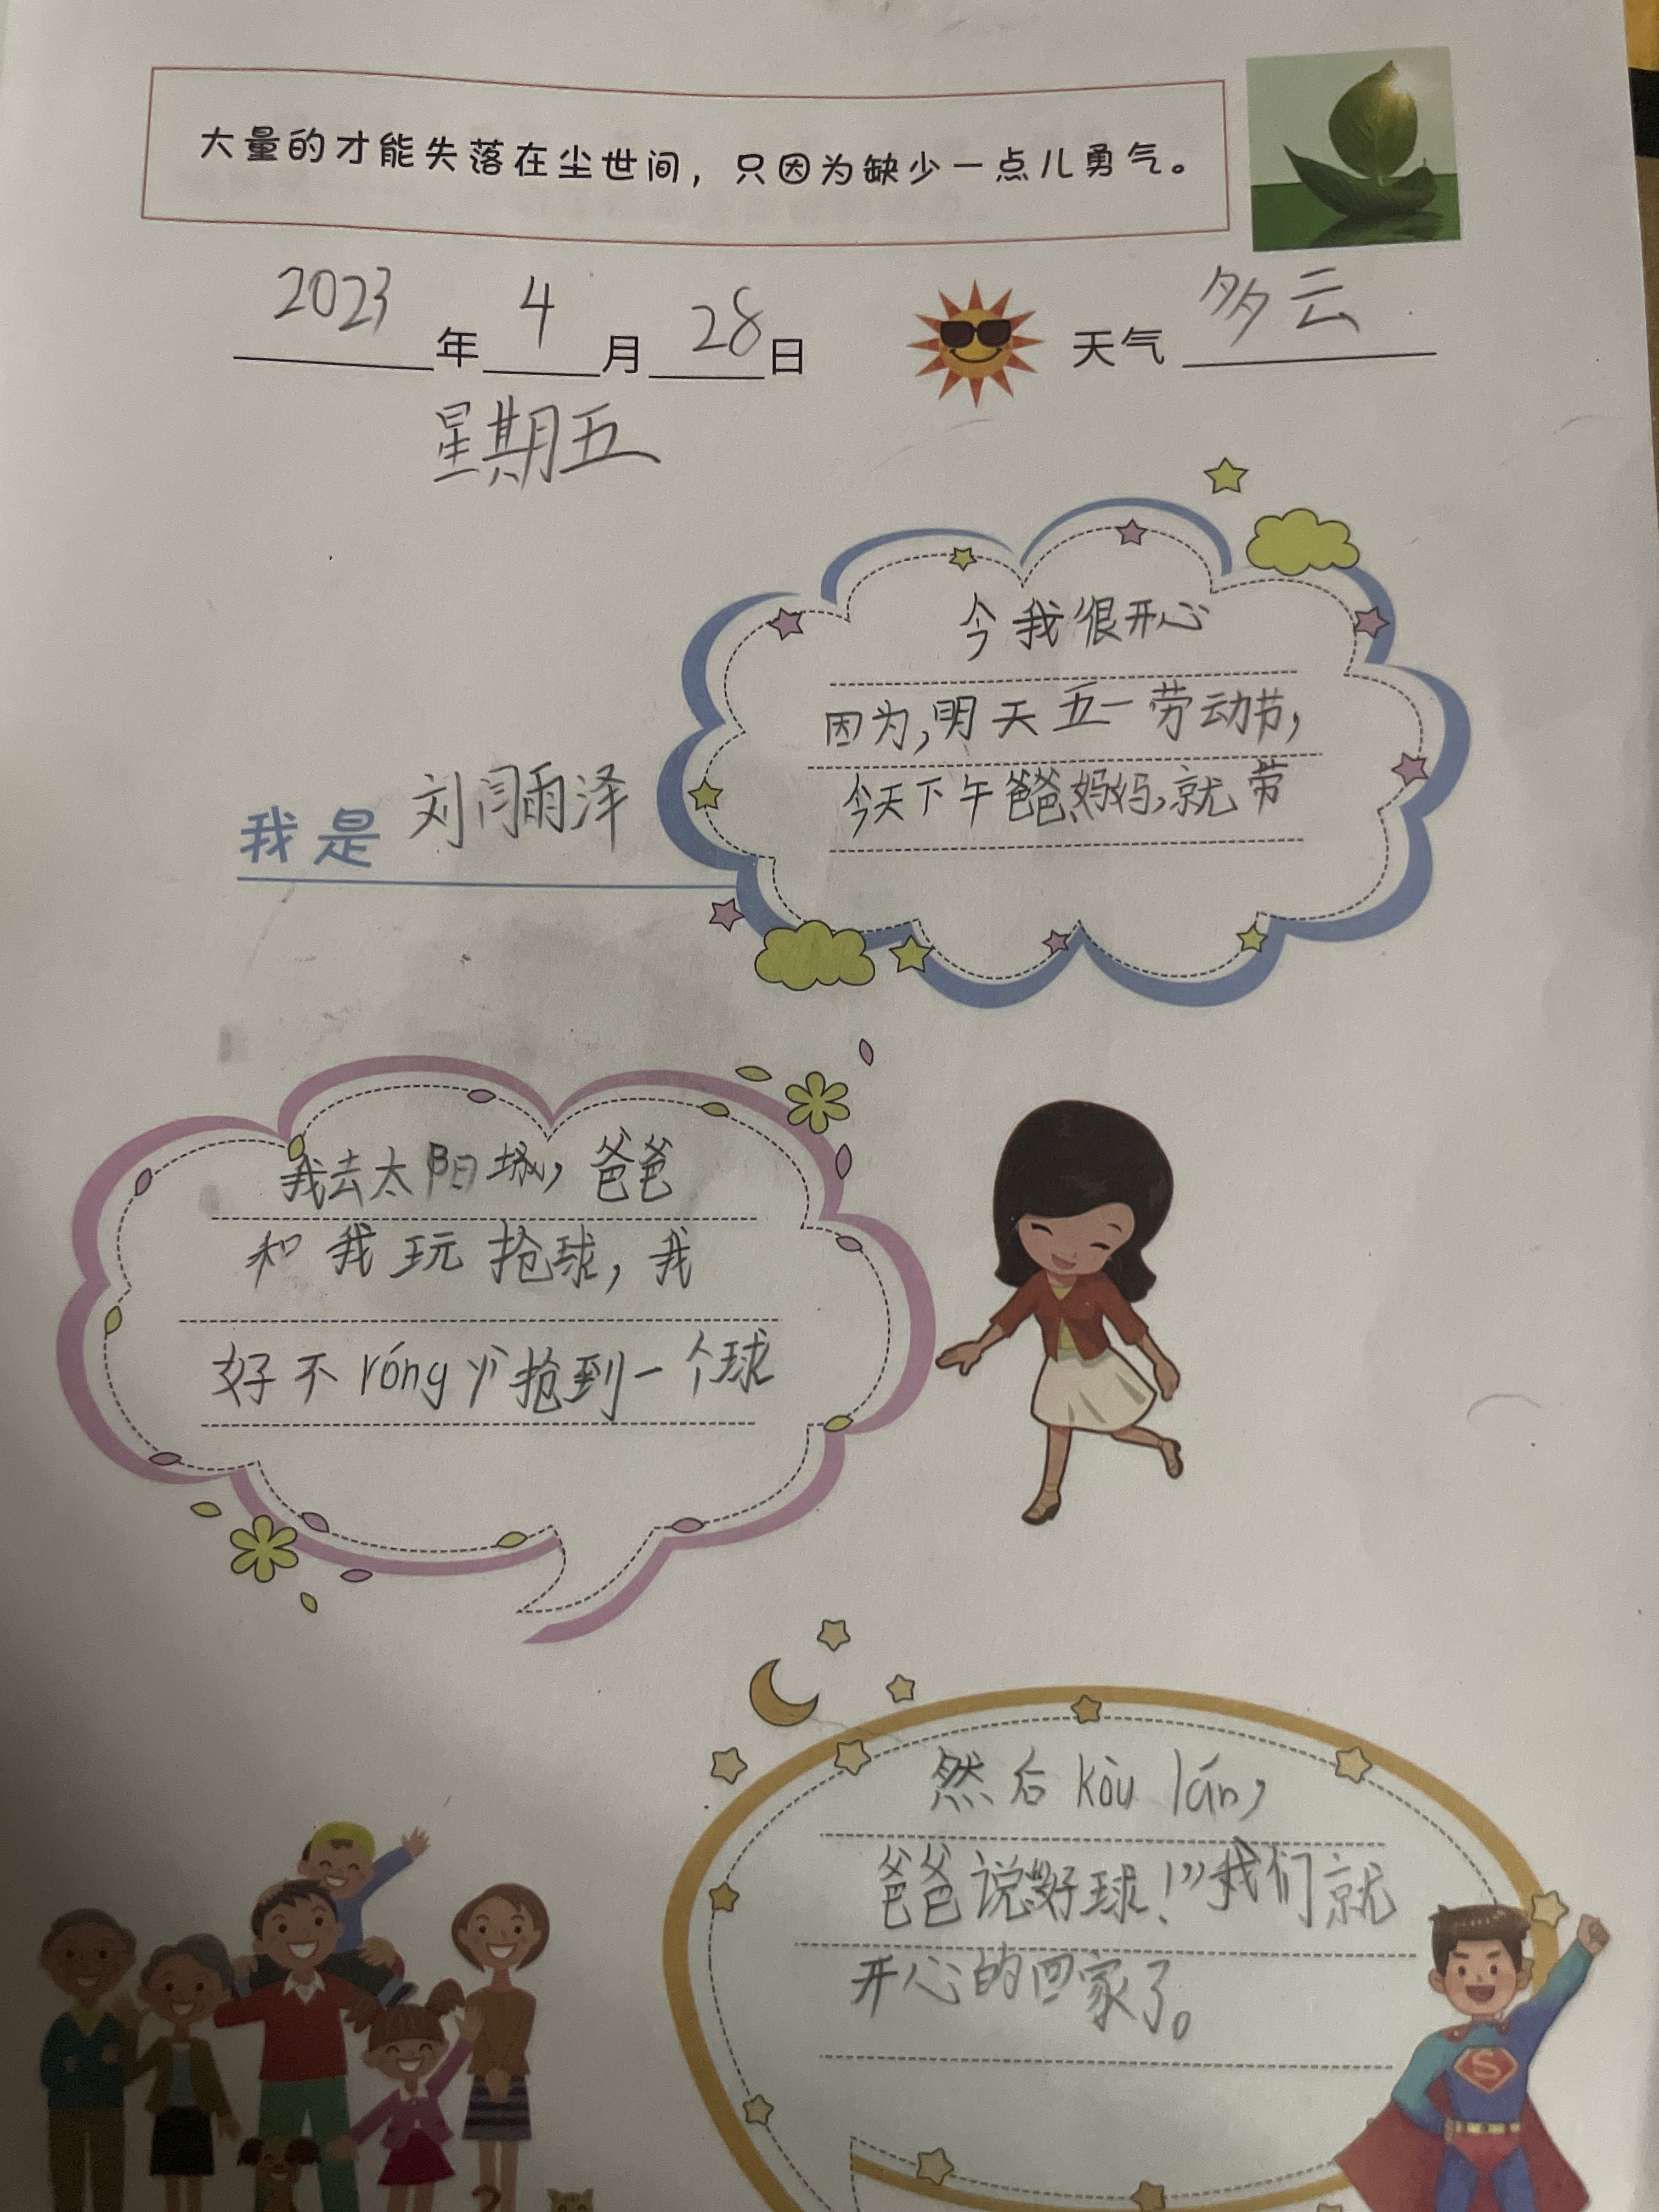 大量的才能失落在尘世间，只因为缺少一点儿勇气。
2023年4月28日 天气 多云
星期五
今我很开心
因为,明天五一劳动节,
今天下午爸爸、妈妈,就带
我是 刘闫雨泽
我去太阳城,爸爸
和我玩抢球,我
好不róng易抢到一个球
然后kòu lán,
爸爸说“好球!”我们就
开心的回家了。
S